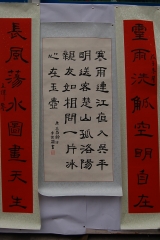 雨洗空明自在
寒雨連江夜入吴平
明送客楚山孤洛陽
親友如相問一片冰
心在玉壺
長風蕩水圖畫天生